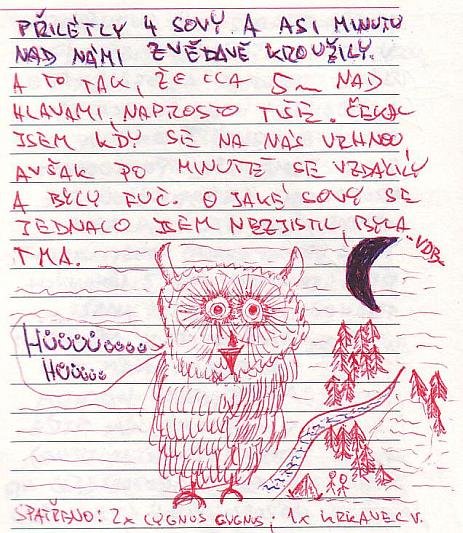 PŘILÉTLY 4 SOVY. A ASI MINUTU
NAD NÁMI ZVĚDAVĚ KROUŽILY.
A TO TAK, ŽE CCA 5m NAD
HLAVAMI, NAPROSTO TIŠE. ČEKAL
JSEM KDY SE NA NÁS VRHNOU,
AVŠAK PO MINUTĚ SE VZDÁLILY
A BYLY FUČ. O JAKÉ SOVY SE
JEDNALO JSEM NEZJISTIL, BYLA
TMA.
HŮŮŮŮŮŮŮŮ
HŮŮŮŮ
SPATŘENO: 2x CYGNUS CYGNUS; 1x KRKAVEC V.